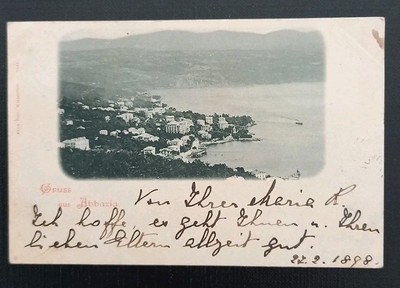 Gruss
aus Abbazia
Von Ihrer Maria K.
Ich hoffe, es geht Ihnen u. Ihren
lieben Eltern allzeit gut.
27.2.1898.